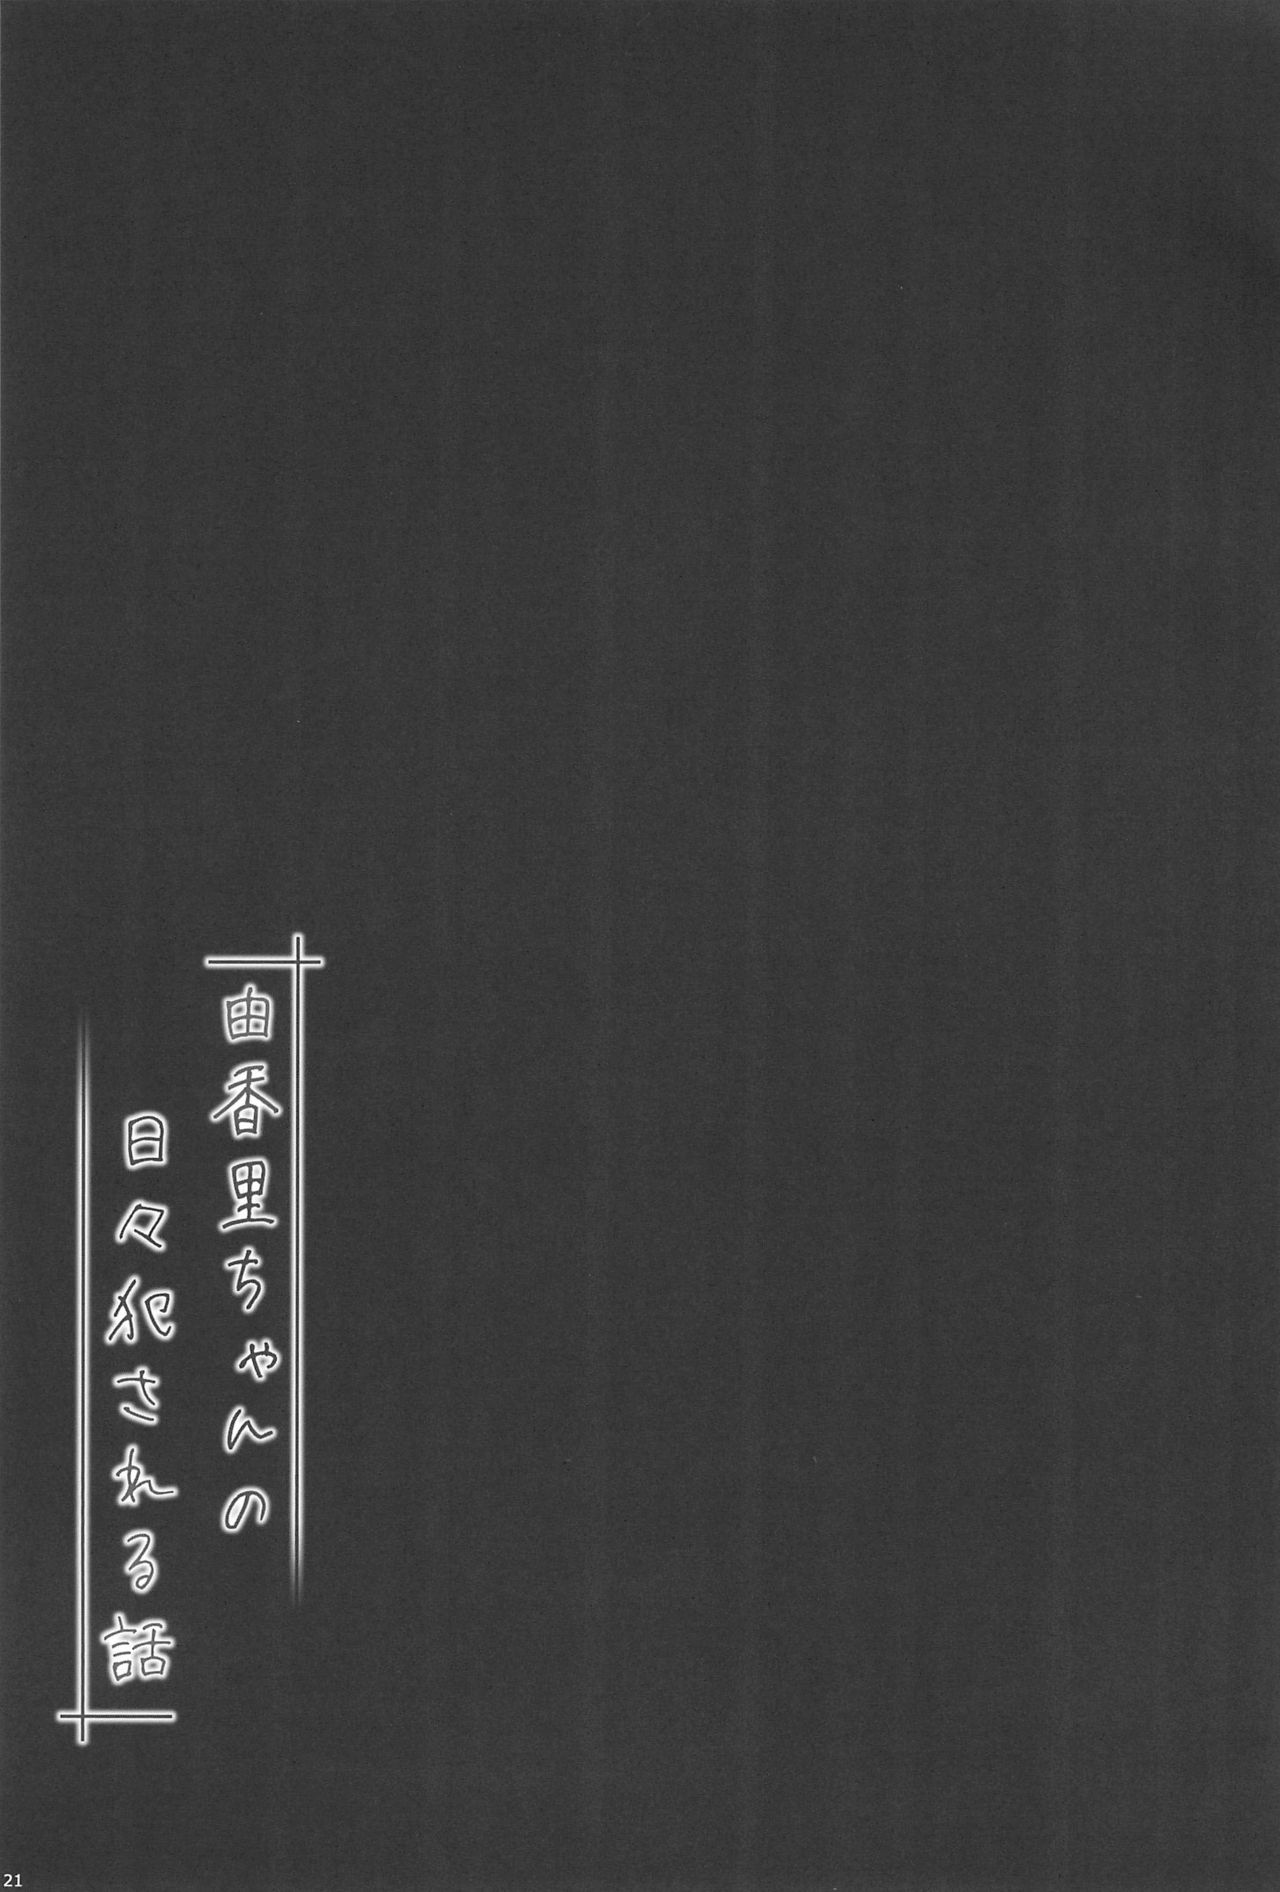 由香里ちゃんの
日々犯される話
21